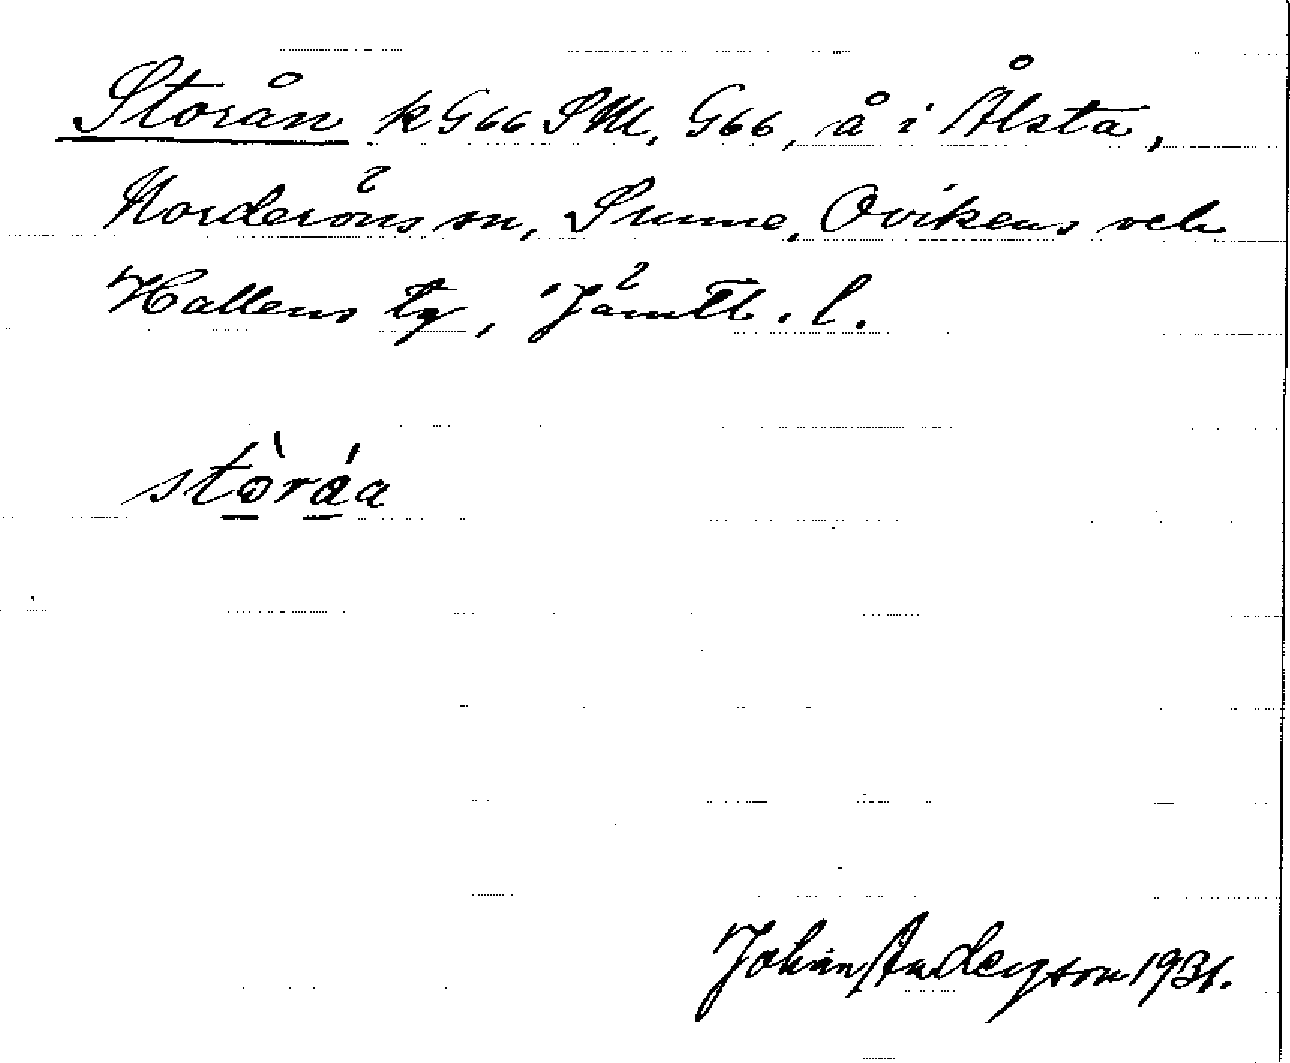 Storån k G66 SM. G66, å i Ålsta,
Norderöns sn, Sunne, Ovikens och
Hallens tg, Jämtl. l.
stòráa
Johan Anderzson 1931.